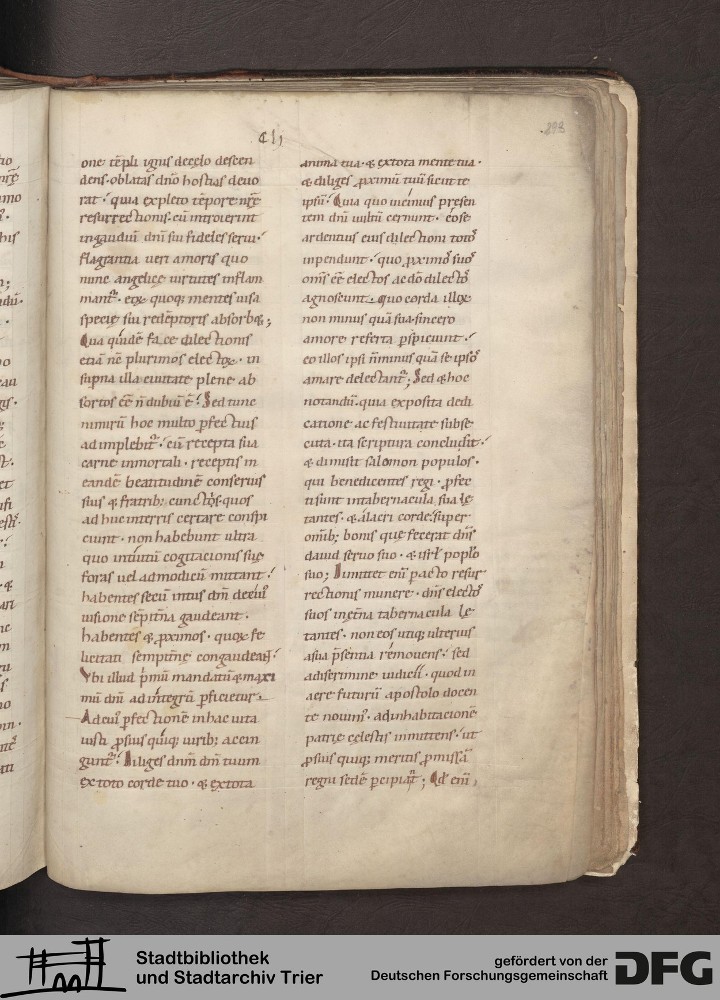 cl,
293
one tēpli ignis decęlo descen
dens· oblatas dno hostias deuo
rat·' quia expleto tēpore nrę
resurrectionis· cū introierint
ingaudiū dni sui fideles serui·'
flagrantia ueri amoris quo
nunc angelicę uirtutes inflam
mant· eoꝝ quoq; mentes uisa
specię sui redēptoris absorbę;
Qua quidē face dilectionis
etiā nē plurimos electoꝝ· in
supna illa ciuitate plene ab
sortos eē n̄ dubiū ē·' Sed tunc
nimirū hoc multo pfectius
adimplebit·' cū recepta sua
carne inmortali· receptis in
eandē beatitudinē conseruis
suis & fratrib; cunctis· quos
ad huc interris certare conspi
ciunt· non habebunt ultra
quo intuitū cogitacionis suę
foras uel admodicū mittant·'
habentes secū intus dm̄ decui'
uisione sēpitna gaudeant·
habentes & ꝓximos· quoꝝ fe
licitati sempitnę congaudeant·'
Vbi illud pmū mandatū & maxi
mū dni ad integrū pficietur·
Ad cui' pfectionē inhac uita
iusti ꝓsius quiq; uirib; accin
gunt·' Diliges dnm dm̄ tuum
ex toto corde tuo· & extota
anima tua· & extota mente tua·
& diliges ꝓximū tuū sicut te
ipsū·' Quia quo uicinius presen
tem dni uultū cernunt· eo se
ardentius eius dilectioni toto
inpendunt· quo ꝓximos suos
om̄s eē electos ac dō dilectos
agnoscunt· quo corda illoꝝ
non minus quā sua· sincero
amore referta pspiciunt·'
eo illos ipsi n̄ minus quā se ipsos
amare delectant; Sed & hoc
notandū· quia exposita dedi
catione ac festiuitate subse
cuta· ita scriptura concludit·'
& dimisit salomon populos·
qui benedicentes regi· ꝓfec
ti sunt intabernacula sua lę
tantes· & alacri corde· super
omīb; bonis que fecerat dns̄
dauid seruo suo· & isrl poplo
suo; Dimittet enī pacto resur
rectionis munere· dns̄ electos
suos ingētna tabernacula lę
tantes· non eos utiq; ulterius
asua psentia remouens·' sed
adiscrimine iudicii· quod in
aere futurū apostolo docen
te nouim'· adinhabitacionē
patrię cęlestis inmittens·' ut
ꝓsius quiq; meritis ꝓmissā
regni sedē pcipiat; Qd enī
Stadtbibliothek
und Stadtarchiv Trier
gefördert von der
Deutschen Forschungsgemeinschaft
DFG